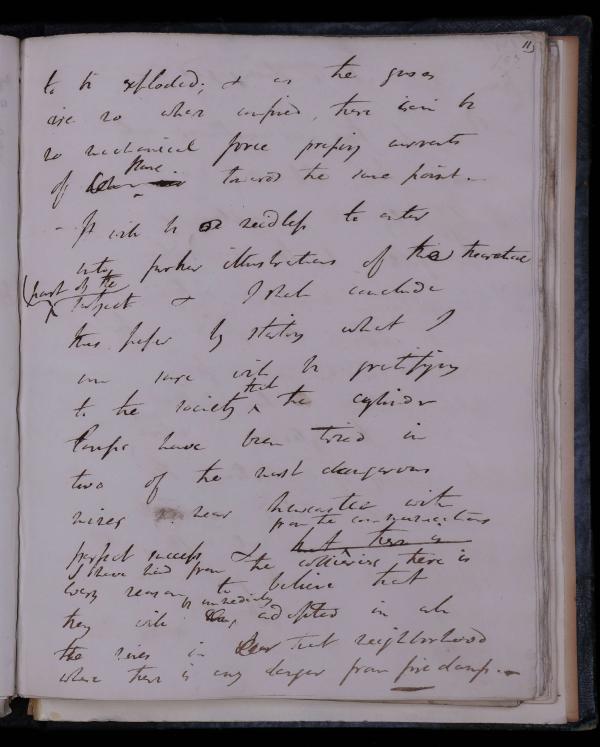 11
to be exploded; & as the gases
are so when confined, there can be
no mechanical force pressing currents
of flame toward the same point.
- It will be needless to enter
into further illustrations of the theoretical
part of the
subject & I shall conclude
this paper by stating what I
am sure will be gratifying
to the society that the cylinder
lamps have been tried in
two of the most dangerous
mines near Newcastle with
perfect success & from the communications
I have had from the collieries there is
every reason to believe that
they will be immediately adopted in all
the mines in that neighborhood
where there is any danger from fire damp. -